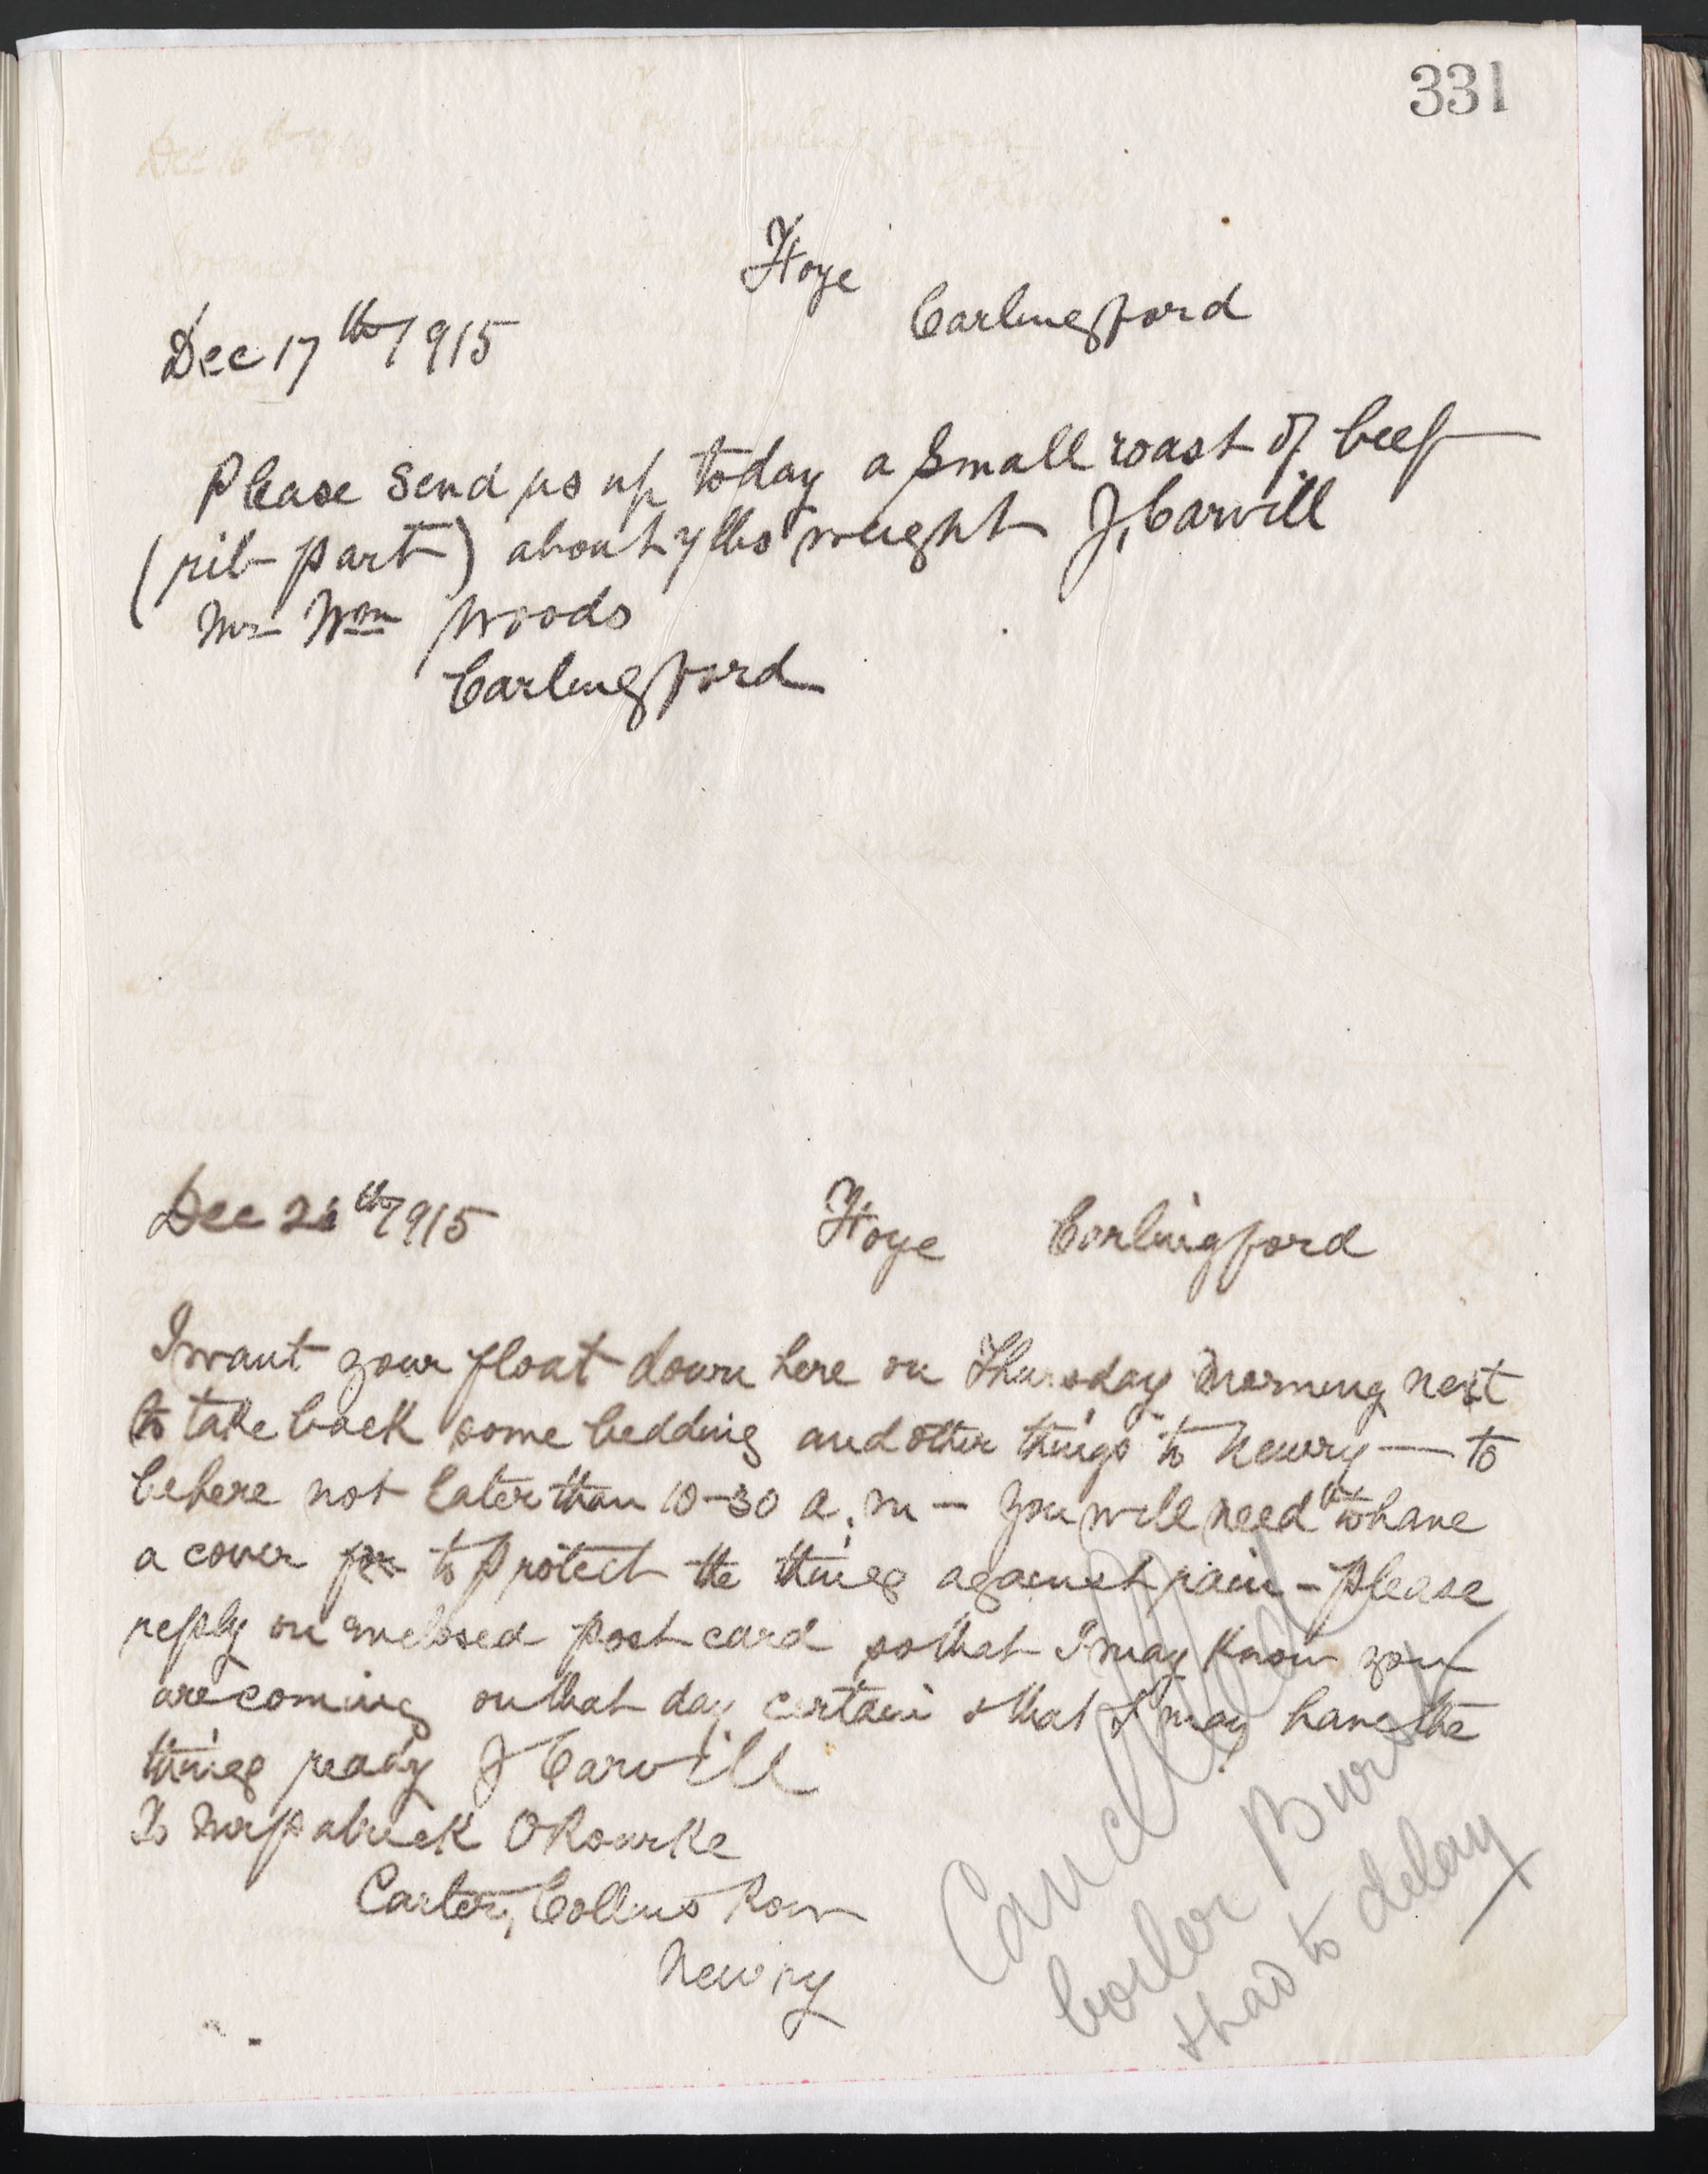 331
Hoye
Carlingford
Dec 17th 1915
Please send us up today a small roast of beef
(rib part) about 7 lbs weight J, Carvill
Mr Wm Woods
Carlingford
Dec 26th 1915 Hoye Carlingford
I want your float down here on Thursday morning next
to take back some bedding and other things to Newry — to
be here not later than 10-30 a.m — you will need to have
a cover for to protect the things against rain - Please
reply on enclosed post card so that I may know you
are coming on that day certain & that I may have the
things ready J Carvill
To Mr Patrick O Rourke
Carter, Collins Row
Newry
Cancelled
boiler Burst
& had to delay